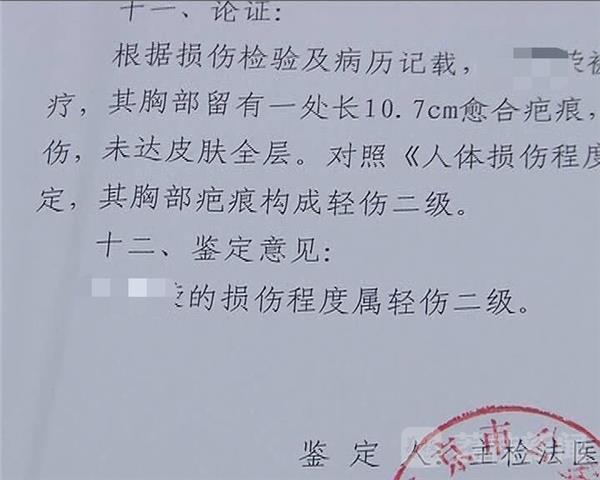 十一、论证：
根据损伤检验及病历记载，
疗，其胸部留有一处长10.7cm愈合疤痕，
伤，未达皮肤全层。对照《人体损伤程度
定，其胸部疤痕构成轻伤二级。
十二、鉴定意见：
的损伤程度属轻伤二级。
鉴 定 人：主检法医
京南